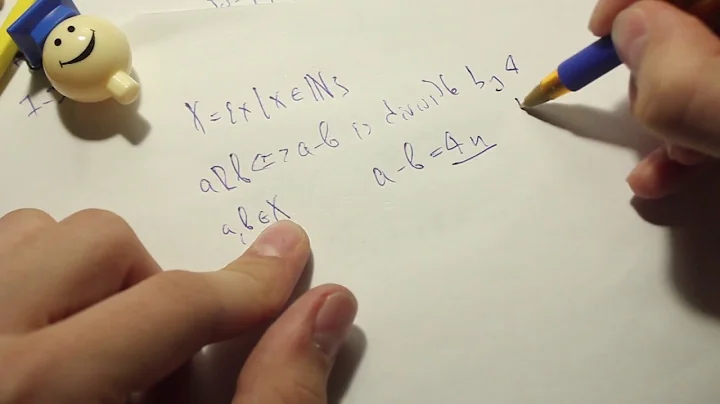 X = {x | x ∈ N}
aRb <=> a-b is divisible by 4
a-b = 4n
a, b ∈ X